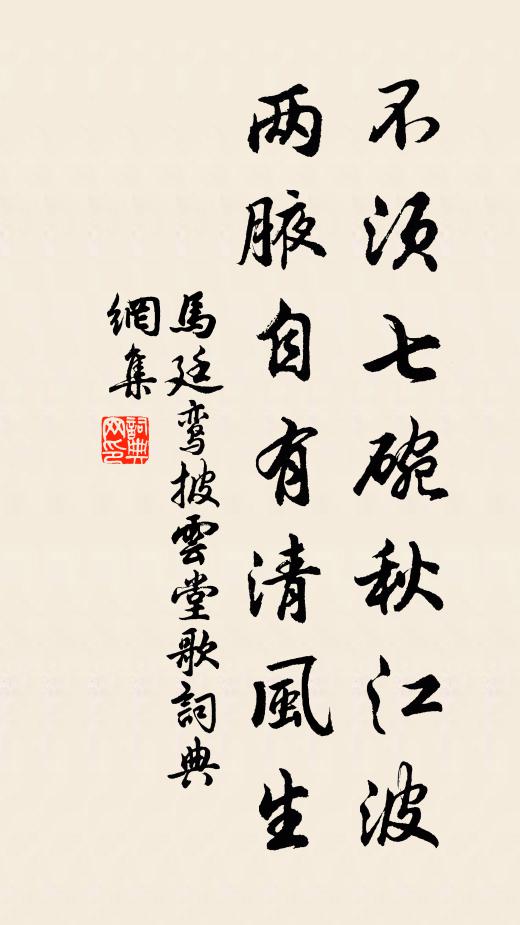 不须七碗秋江波
两腋自有清風生
馬廷鸾披雲堂歌詞典
網集
詞典
网印